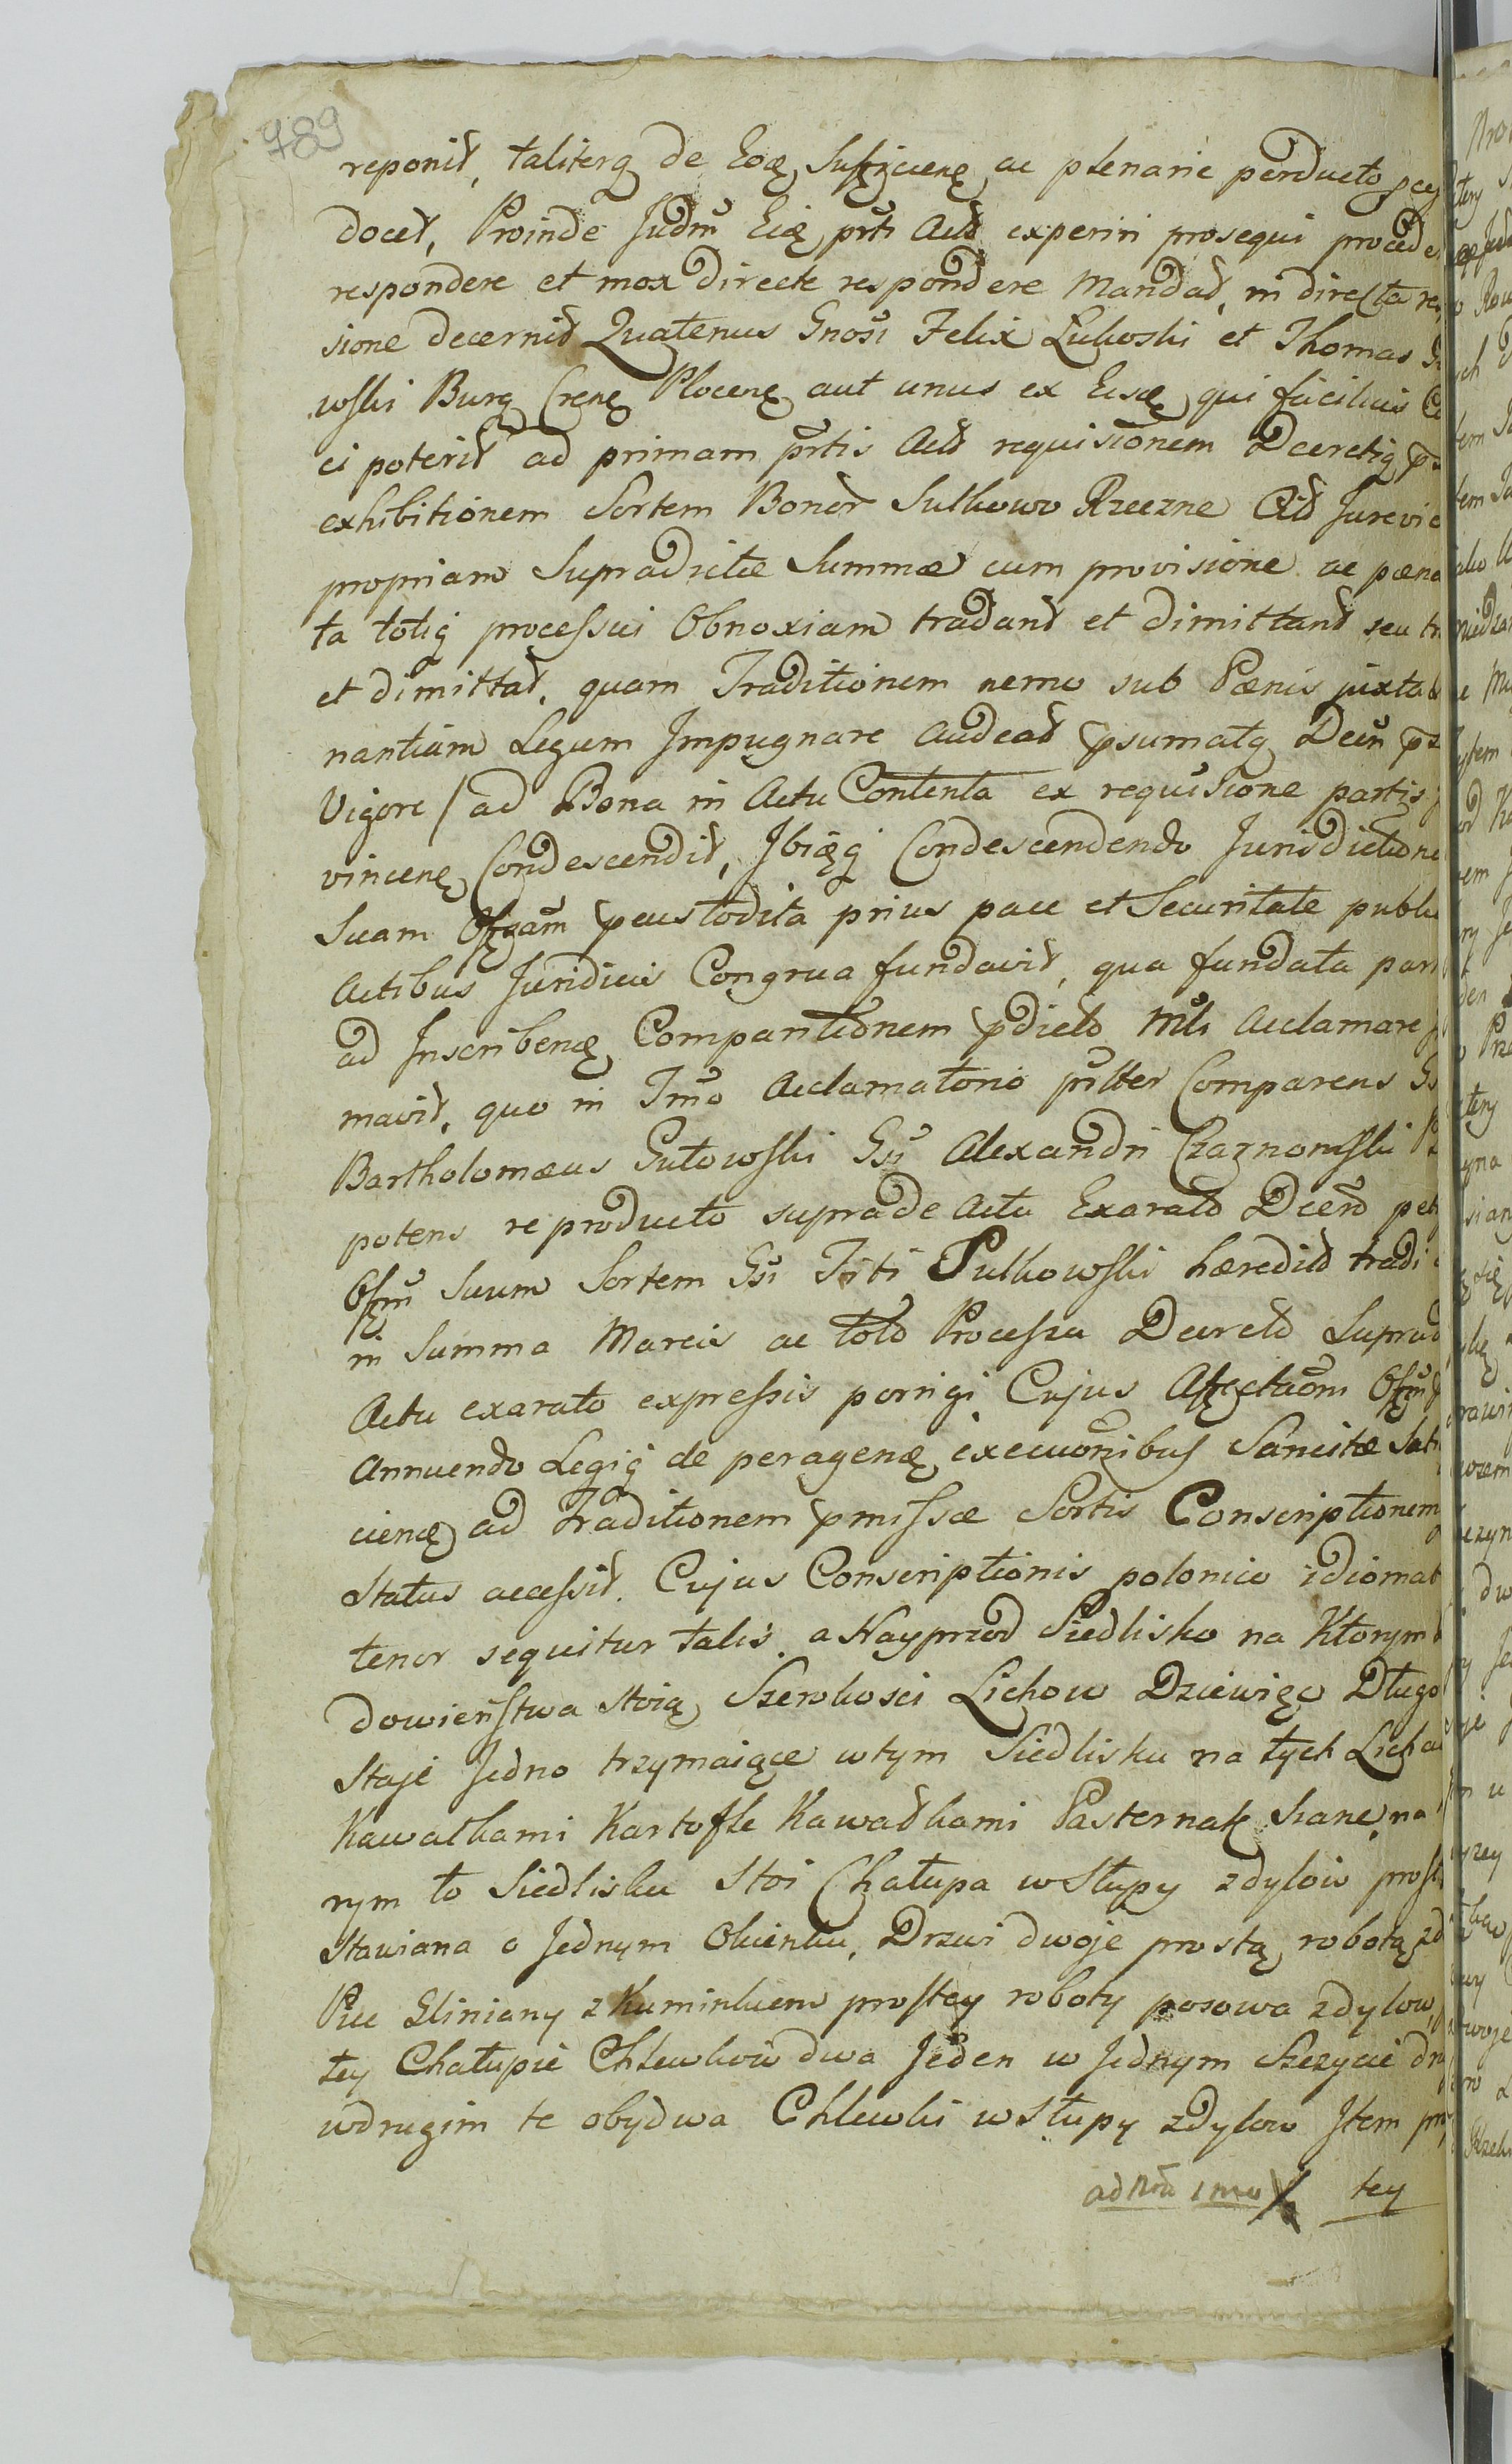 789
reponit, taliterq de Eoq sufficienę ac plenarie perducto
docet, Proinde Judm Eię prti Actt experiri prosequi procede
respondere et mox directe respondere Mandat, in directa res
sione decernit Quatenus Gnosi Felix Lukoski et Thomas
wski Burg Crenę Plocenę aut unus ex Eisę qui facilius
ei poterit ad primam prtis Actt requisionem Decretiq
exhibitionem Sortem Bonor Sulkowo Rzeczne Citt Jurevic
propriam Supradictæ Summæ cum provisione ac pæna
ta totiq processui Obnoxiam tradant et dimittant seu tr
et dimittat, quam Traditionem nemo sub Pænis juxta
nantiam Legum Impugnare audeat psumatq Decń
Vigore / ad Bona in Actu Contenta ex requisione partis
vincenę Condescendit, Ibiqę Condescendendo Jurisdictione
Suam Offzam pcustodita prius pace et Securitate publi
Actibus Juridicis Congrua fundavit, qua fundata par
ad Inscribenę Comparitionem pdictt Mtt Acclamare
mavit, quo in Tmo Acclamatorio pńtter Comparens
Bartholomæus Gutowski Gsi Alexandri Czaznomski
potens reproducto suprade Actu Exaratt Dcertt pet
Offm suum Sortem Gsi Titi Pulkowski hæreditt tradi
in Summa Marcis ac tott Processu Decrett Suprad
Actu exarato expressis porrigi Cujus Affectaom Offm
Annuendo Legiq de peragenę execuõnibus Sancitæ Sat
cienę ad Traditionem pmissæ Sortis Conscriptionem
Status accessit. Cujus Conscriptionis polonico idiomat
tenor sequitur talis. a Nayprzod Siedlisko na Ktorym
dowieństwa stoią Szerokosci Lichow Dziewięc Długo
Staje Jedno trzymaiące wtym Siedlisku na tych Licha
Kawałkami Kartofle Kawałkami Pasternak Siane, na
rym to Siedlisku Stoi Chałupa w Słupy zdylow prost
Stawiana o Jednym Okienku, Drzwi dwoje prostą robotą
Piec Gliniany z Kuminkiem prostey roboty posowa zdylow,
tey Chałupie Chlewkow dwa Jeden w Jednym Szczycie dr
wdrugim te obydwa Chlewki w Słupy zdylow Item
tey